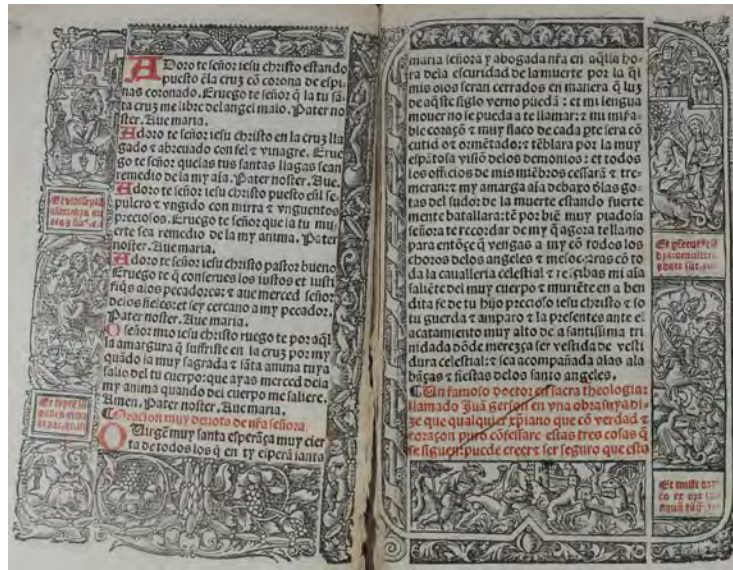 ADoro te señor iesu christo estando
puesto ẽla cruz cõ corona de espi
nas coronado. E ruego te señor q̃ la tu sã
ta cruz me libre del angel malo. Pater no
ster. Aue maria.
Adoro te señor iesu christo en la cruz lla
gado ⁊ abreuado con fel ⁊ vinagre. E rue
go te señor que las tus santas llagas sean
remedio de la my aĩa. Pater noster. Aue.
Adoro te señor iesu christo puesto eñl se
pulcro ⁊ vngido con mirra ⁊ vnguentos
preciosos. E ruego te señor que la tu mu
erte sea remedio de la my anima. Pater
noster. Aue maria.
Adoro te señor iesu christo pastor bueno
E ruego te q̃ conserues los iustos et iusti
fiq̃s alos pecadores: ⁊ aue merced señor
de los fieles: et sey cercano a my pecador.
Pater noster. Aue maria.
O señor mio iesu christo ruego te por aq̃l
la amargura q̃ suffriste en la cruz por my
quãdo la muy sagrada ⁊ sãta anima tuya
salio del tu cuerpo: que ayas merced dela
my anima quando del cuerpo me saliere.
Amen. Pater noster. Aue maria.
¶ Oracion muy deuota de nr̃a señora.
O Uirgẽ muy santa esperãça muy cier
ta de todos los q̃ en ty esperã santa
maria señora y abogada nr̃a en aq̃lla ho
ra dela escuridad de la muerte por la q̃l
mis oios seran cerrados en manera q̃ luz
de aq̃ste siglo ver no puedã: et mi lengua
mouer no se pueda a te llamar: ⁊ mi
coraçõ ⁊ muy flaco de cada pte sera cõ
cutido ⁊ ormẽtado: ⁊ tẽblara por la muy
espãtosa visiõ delos demonios: et todos
los officios de mis miẽbros cessarã ⁊ tre
meran: ⁊ my amarga aĩa debaxo ỏlas go
tas del sudor de la muerte estando fuerte
mente batallara: tẽ por biẽ muy piadosa
señora te recordar de my q̃ agora te llamo
para entõçe q̃ vengas a my cõ todos los
choros delos angeles ⁊ cõ to
da la caualleria celestial ⁊ resçibas mi aĩa
saliẽte del muy cuerpo ⁊ muriẽte en a ben
dita fe de tu hijo precioso iesu christo ⁊ so
tu guerda ⁊ amparo ⁊ la presentes ante el
acatamiento muy alto de a santissima tri
nidad a dõde merezça ser vestida de vesti
dura celestial: ⁊ sea acompañada alas ala
bãças ⁊ fiestas delos santo angeles.
¶ Un famoso doctor en sacra theologia:
llamado Juã gerson en vna obra suya di
ze que qualquier xp̃iano que cõ verdad ⁊
coraçon puro cõfessare estas tres cosas q̃
se siguen: puede creer ⁊ ser seguro que esta